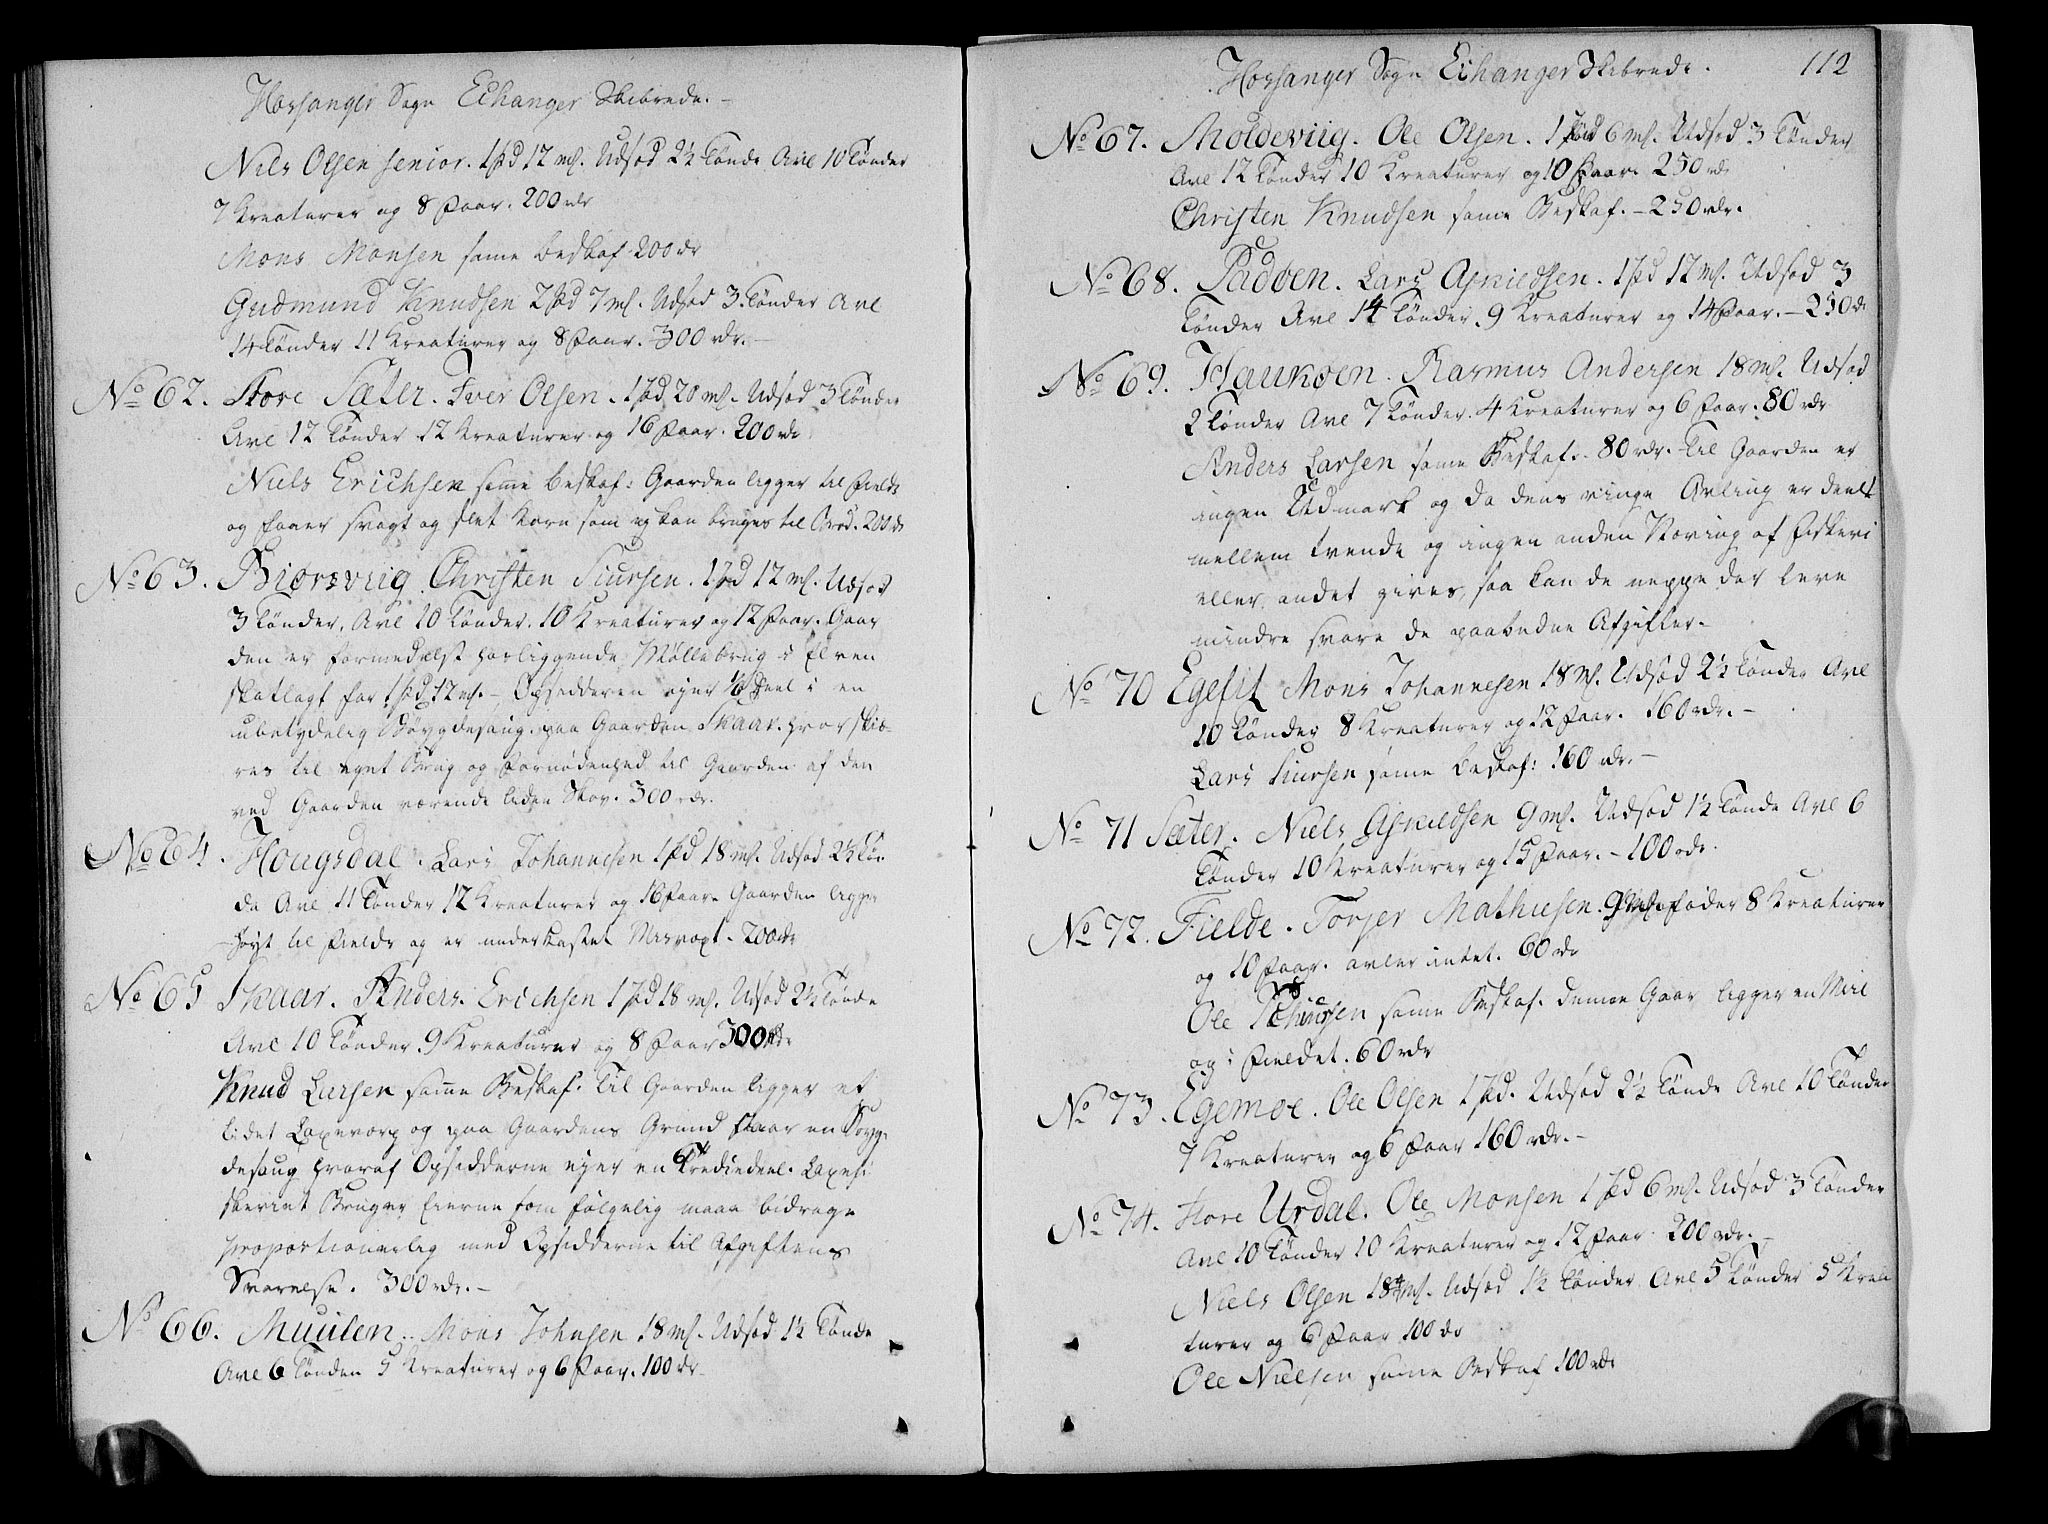 Hossanger Sogn Echanger Skibrede. -
Niels Olsen senior. 1 pd 12 mk. Udsød 2½ Tønde Avl 10 Tønder
7 Kreaturer og 8 Faar. 200 rdr
Mons Monsen same beskaf 200 dr
Gudmund Knudsen 2 pd 7 mk. Udsød 3 Tønder Avl
14 Tønder 11 Kreaturer og 8 Faar. 300 rdr. -
No 62. Store Sæter. Iver Olsen. 1 pd 20 mk. Udsød 3 Tønder
Avl 12 Tønder 12 Kreaturer og 16 Faar. 200 rdr
Niels Erichsen same beskaf: Gaarden ligger til Fields
og faaer svagt og slet Korn som ej kan bruges til Brød. 200 dr
No 63. Biørsviig Christen Siursen. 1 pd 12 mk. Udsød
3 Tønder, Avl 10 Tønder. 10 Kreaturer og 12 Faar. Gaar
den er formedelst hosliggende Møllebrug i Elven
skatlagt for 1 pd 12 mk. - Opsidderen ejer 1/6 Deel i en
ubetydelig Bøygdesaug paa Gaarden Skaar. hvor skiæ-
res til eget Brug og Fornødenhed til Gaarden af den
ved Gaarden værende liden Skov. 300 rdr.
No 64. Hougsdal. Lars Johannesen 1 pd 18 mk. Udsød 2½ Tøn
de Avl 11 Tønder 12 Kreaturer og 16 Faar. Gaarden ligger
høyt til Fields og er underkastet Misvext. 200 dr
No 65 Skaar. Anders Erichsen 1 pd 18 mk. Udsød 2½ Tønde
Avl 10 Tønder 9 Kreaturer og 8 Faar 300 rdr
Knud Larsen same Beskaf. Til Gaarden ligger et
lidet Laxevarp og paa Gaardens Grund staar en Bøyg-
desaug hvoraf Opsidderne ejer en Trediedeel. Laxefi
skeriet Bruger Eierne som følgelig maae bidrage
proportionerlig med Opsidderne til Afgiftens
Svarelse. 300 rdr. -
No 66. Muulen. Mons Johnsen 18 mk. Udsød 1½ Tønde
Avl 6 Tønder 5 Kreaturer og 6 Faar. 100 dr
Hossanger Sogn Echanger Skibrede. 112
No 67. Moldeviig. Ole Olsen. 1 pd 6 mk. Udsød 3 Tønder
Avl 12 Tønder 10 Kreaturer og 10 Faar. 250 rd
Christen Knudsen same Beskaf. - 250 rdr.
No 68. Padøen. Lars Asnieldsen. 1 pd 12 mk. Udsød 3
Tønder Avl 14 Tønder. 9 Kreaturer og 14 Faar. - 250 dr
No 69. Haukøen. Rasmus Andersen 18 mk. Udsød
2 Tønder Avl 7 Tønder. 4 Kreaturer og 6 Faar. 80 rdr
Anders Larsen same Beskaf. 80 rdr. Til Gaarden er
ingen Udmark og da dens ringe Avling er deelt
mellem tvende og ingen anden Næring af Fiskeri
eller andet gives, saa kan de neppe der leve
mindre svare de paabudne Afgifter. -
No 70 Egesit Mons Johannesen 18 mk. Udsød 2½ Tønder Avl
10 Tønder 8 Kreaturer og 12 Faar. 160 rdr. -
Lars Siursen same beskaf: 160 rdr. -
No 71 Sæter. Niels Asnieldsen 9 mk. Udsød 1½ Tønde Avl 6
Tønder 10 Kreaturer og 15 Faar. - 100 rdr.
No 72. Fielde. Torger Mathiesen. 9 mk. føder 8 Kreaturer
og 10 Faar. avler intet. 60 dr
Ole same Beskaf. denne Gaar ligger en Miil
og i Fieldet. 60 rdr
No 73. Egemoe. Ole Olsen 1 pd. Udsød 2½ Tønde Avl 10 Tønder
7 Kreaturer og 6 Faar 160 rdr. -
No 74. Store Urdal. Ole Monsen 1 pd 6 mk. Udsød 3 Tønder
Avl 10 Tønder 10 Kreaturer og 12 Faar 200 rdr. -
Niels Olsen 18 mk. Udsød 1½ Tønder Avl 5 Tønder 5 Krea
turer og 6 Faar 100 dr
Ole Nielsen same Beskaf 100 rdr